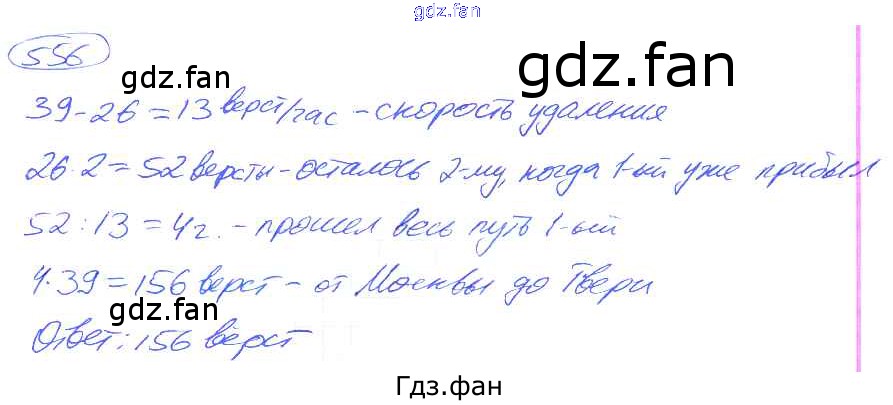 gdz.fan
556
gdz.fan
gdz.fan
39-26=13 верст/час - скорость удаления
26·2=52 версты - осталось 2-му, когда 1-ый уже прибыл
52:13=4г. - прошел весь путь 1-ый
4·39=156 верст - от Москвы до Твери
gdz.fan
gdz.fan
Ответ: 156 вёрст
Гдз.фан